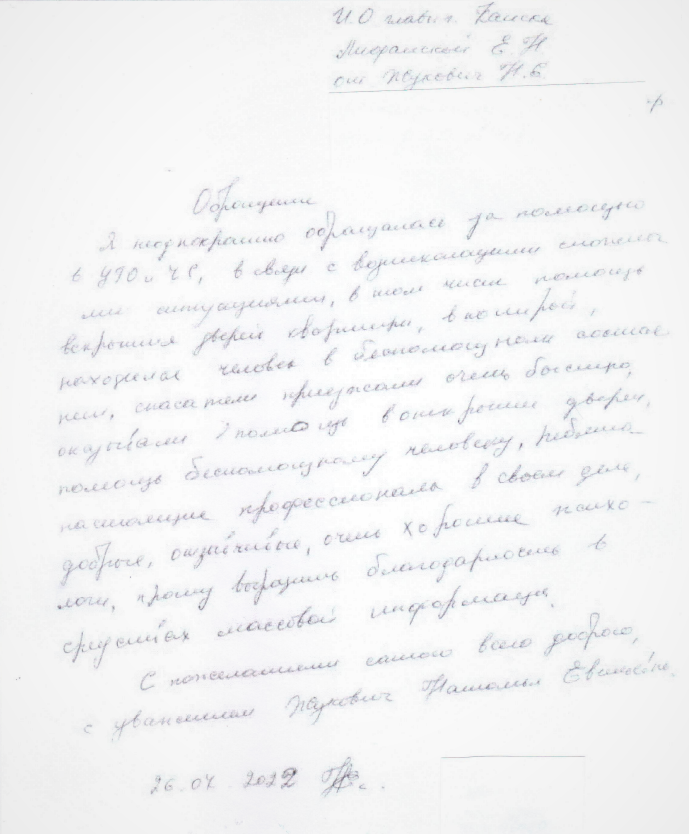 И.О главы г. Канска
Лифанской Е Н
от Жукович Н.Е
Обращение
Я неоднократно обращалась за помощью
в УГО и ЧС, в связи с возникающими сложны
ми ситуациями, в том числе помощь
вскрытия дверей квартиры, в которой,
находился человек в беспомощном состоя
нии, спасатели приезжали очень быстро,
оказывали помощь в открытие двери,
помощь беспомощному человеку, ребята
настоящие профессионалы в своем деле,
добрые, отзывчивые, очень хорошие психо-
логи, прошу выразить благодарность в
средствах массовой информации.
С пожеланиями самого всего доброго,
с уважением Жукович Наталья
26.07.2022